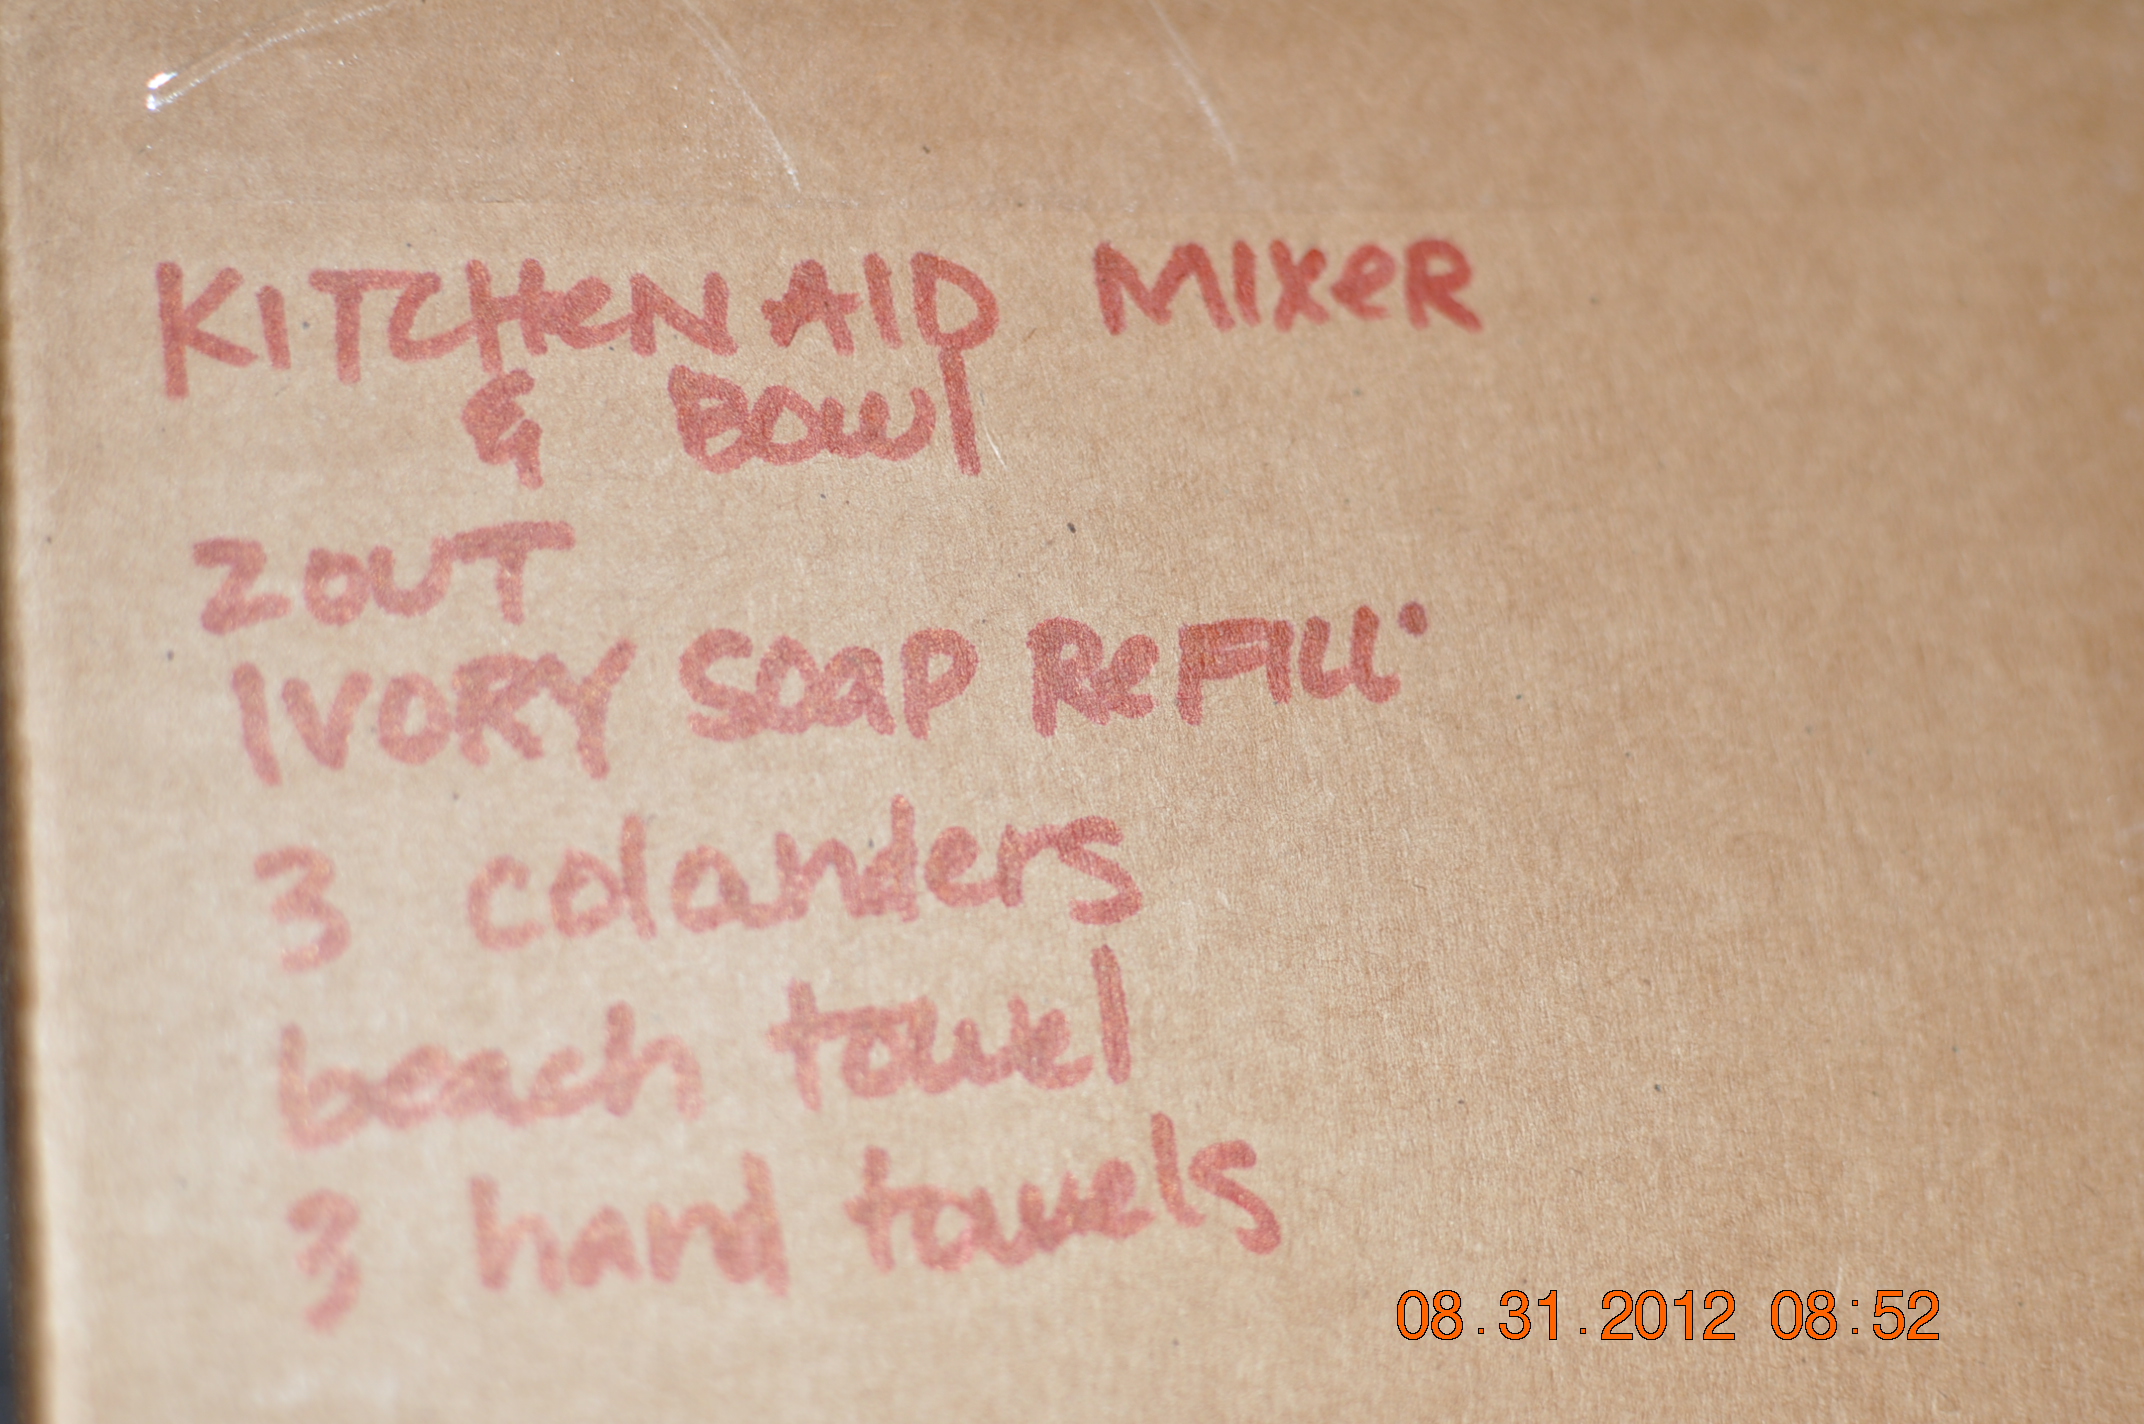 KITCHeN AID MIXeR
& BOWl
ZOUT
IVORY SOaP ReFILL
3 colanders
beach towel
3 hand towels
08.31.2012 08:52